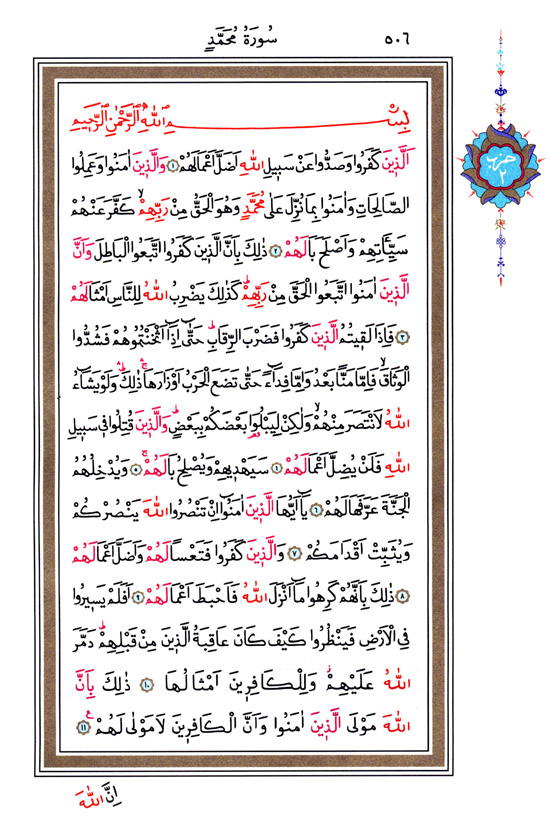 سُورَةُ مُحَمَّدٍ ٥٠٦
بِسْمِ اللّٰهِ الرَّحْمٰنِ الرَّحِيمِ
حزب ٢
اَلَّذِينَ كَفَرُوا وَصَدُّوا عَنْ سَبِيلِ اللّٰهِ اَضَلَّ اَعْمَالَهُمْ ﴿١﴾ وَالَّذِينَ اٰمَنُوا وَعَمِلُوا
الصَّالِحَاتِ وَاٰمَنُوا بِمَا نُزِّلَ عَلٰى مُحَمَّدٍ وَهُوَ الْحَقُّ مِنْ رَبِّهِمْۙ كَفَّرَ عَنْهُمْ
سَيِّـَٔاتِهِمْ وَاَصْلَحَ بَالَهُمْ ﴿٢﴾ ذٰلِكَ بِاَنَّ الَّذِينَ كَفَرُوا اتَّبَعُوا الْبَاطِلَ وَاَنَّ
الَّذِينَ اٰمَنُوا اتَّبَعُوا الْحَقَّ مِنْ رَبِّهِمْۜ كَذٰلِكَ يَضْرِبُ اللّٰهُ لِلنَّاسِ اَمْثَالَهُمْ
﴿٣﴾ فَاِذَا لَقِيتُمُ الَّذِينَ كَفَرُوا فَضَرْبَ الرِّقَابِۜ حَتّٰٓى اِذَٓا اَثْخَنْتُمُوهُمْ فَشُدُّوا
الْوَثَاقَۙ فَاِمَّا مَنًّا بَعْدُ وَاِمَّا فِدَٓاءً حَتّٰى تَضَعَ الْحَرْبُ اَوْزَارَهَاۚ ذٰلِكَۜ وَلَوْ يَشَٓاءُ
اللّٰهُ لَانْتَصَرَ مِنْهُمْۙ وَلٰكِنْ لِيَبْلُوَ۬ا بَعْضَكُمْ بِبَعْضٍۜ وَالَّذِينَ قُتِلُوا فِي سَبِيلِ
اللّٰهِ فَلَنْ يُضِلَّ اَعْمَالَهُمْ ﴿٤﴾ سَيَهْدِيهِمْ وَيُصْلِحُ بَالَهُمْۚ ﴿٥﴾ وَيُدْخِلُهُمُ
الْجَنَّةَ عَرَّفَهَا لَهُمْ ﴿٦﴾ يَٓا اَيُّهَا الَّذِينَ اٰمَنُٓوا اِنْ تَنْصُرُوا اللّٰهَ يَنْصُرْكُمْ
وَيُثَبِّتْ اَقْدَامَكُمْ ﴿٧﴾ وَالَّذِينَ كَفَرُوا فَتَعْسًا لَهُمْ وَاَضَلَّ اَعْمَالَهُمْ
﴿٨﴾ ذٰلِكَ بِاَنَّهُمْ كَرِهُوا مَٓا اَنْزَلَ اللّٰهُ فَاَحْبَطَ اَعْمَالَهُمْ ﴿٩﴾ اَفَلَمْ يَسِيرُوا
فِي الْاَرْضِ فَيَنْظُرُوا كَيْفَ كَانَ عَاقِبَةُ الَّذِينَ مِنْ قَبْلِهِمْۜ دَمَّرَ
اللّٰهُ عَلَيْهِمْۘ وَلِلْكَافِرِينَ اَمْثَالُهَا ﴿١٠﴾ ذٰلِكَ بِاَنَّ
اللّٰهَ مَوْلَى الَّذِينَ اٰمَنُوا وَاَنَّ الْكَافِرِينَ لَا مَوْلٰى لَهُمْ۟ ﴿١١﴾
اِنَّ اللّٰهَ